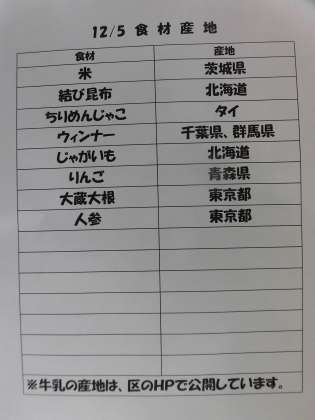 12/5 食材産地
食材 産地
米 茨城県
結び昆布 北海道
ちりめんじゃこ タイ
ウィンナー 千葉県、群馬県
じゃがいも 北海道
りんご 青森県
大蔵大根 東京都
人参 東京都
※牛乳の産地は、区のHPで公開しています。